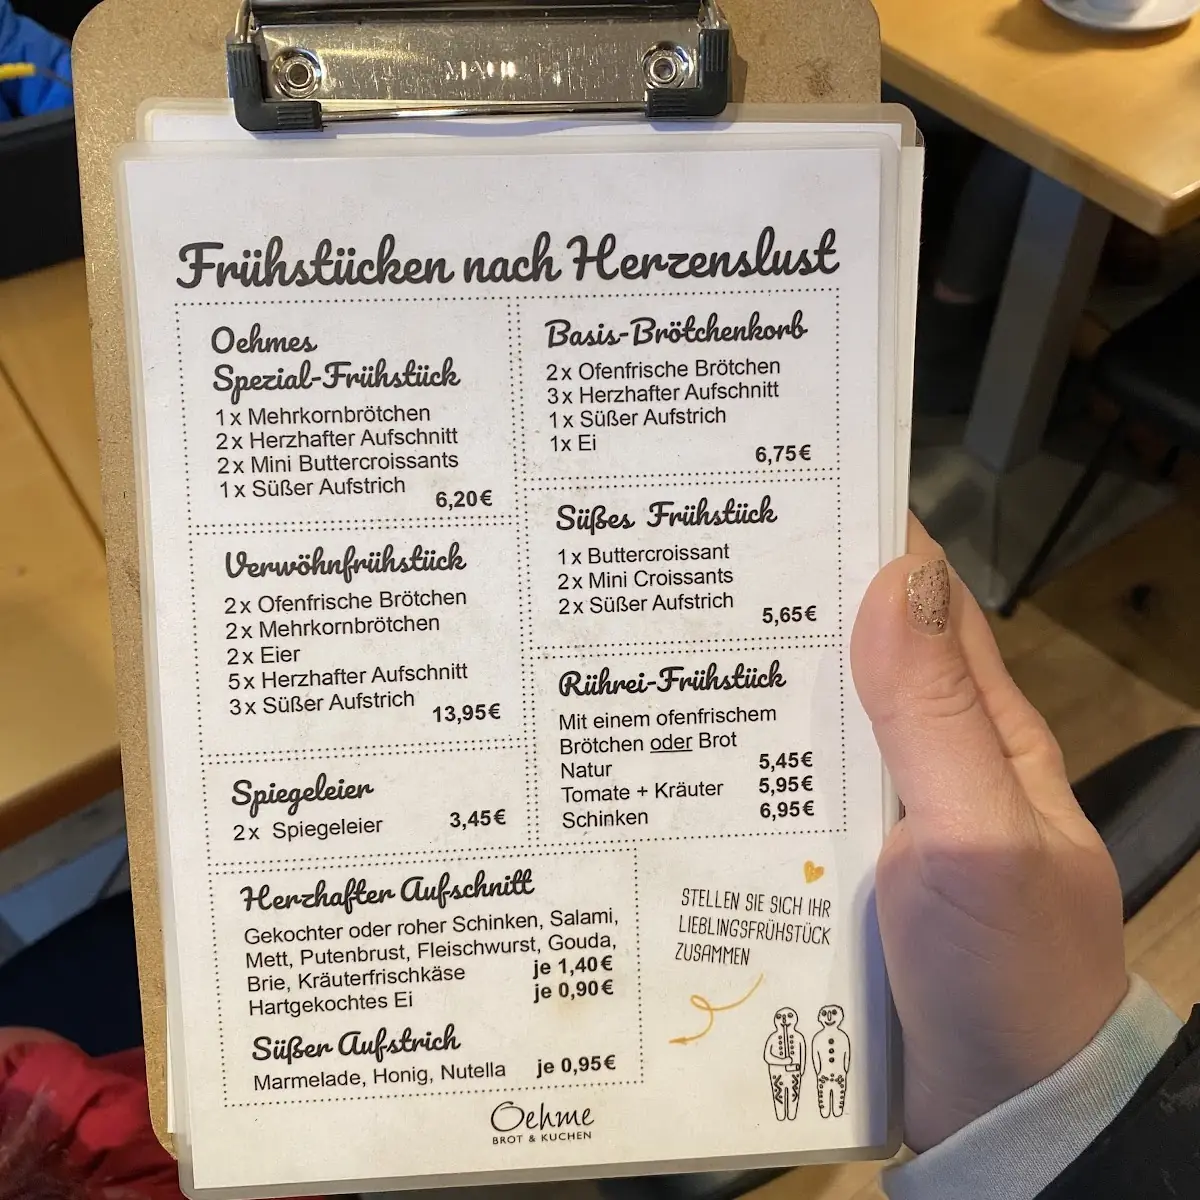 MAUL
Frühstücken nach Herzenslust
Oehmes
Spezial-Frühstück
1x Mehrkornbrötchen
2x Herzhafter Aufschnitt
2x Mini Buttercroissants
1x Süßer Aufstrich
6,20€
Verwöhnfrühstück
2x Ofenfrische Brötchen
2x Mehrkornbrötchen
2x Eier
5x Herzhafter Aufschnitt
3x Süßer Aufstrich
13,95€
Spiegeleier
2x Spiegeleier 3,45€
Basis-Brötchenkorb
2x Ofenfrische Brötchen
3x Herzhafter Aufschnitt
1x Süßer Aufstrich
1x Ei
6,75€
Süßes Frühstück
1x Buttercroissant
2x Mini Croissants
2x Süßer Aufstrich
5,65€
Rührei-Frühstück
Mit einem ofenfrischem
Brötchen oder Brot
Natur 5,45€
Tomate + Kräuter 5,95€
Schinken 6,95€
Herzhafter Aufschnitt
Gekochter oder roher Schinken, Salami,
Mett, Putenbrust, Fleischwurst, Gouda,
Brie, Kräuterfrischkäse je 1,40€
Hartgekochtes Ei je 0,90€
Süßer Aufstrich
Marmelade, Honig, Nutella je 0,95€
STELLEN SIE SICH IHR
LIEBLINGSFRÜHSTÜCK
ZUSAMMEN
Oehme
BROT & KUCHEN